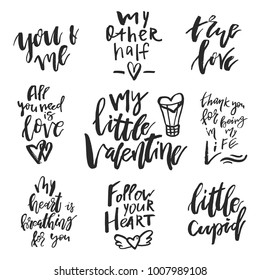 you &
me
my
other
half
true
love
All
you need
is
love
my
little
Valentine
thank you
for being
in my
LiFE
My
heart is
breathing
for you
Follow
YOUR
HEART
little
cupid
www.shutterstock.com · 1007989108